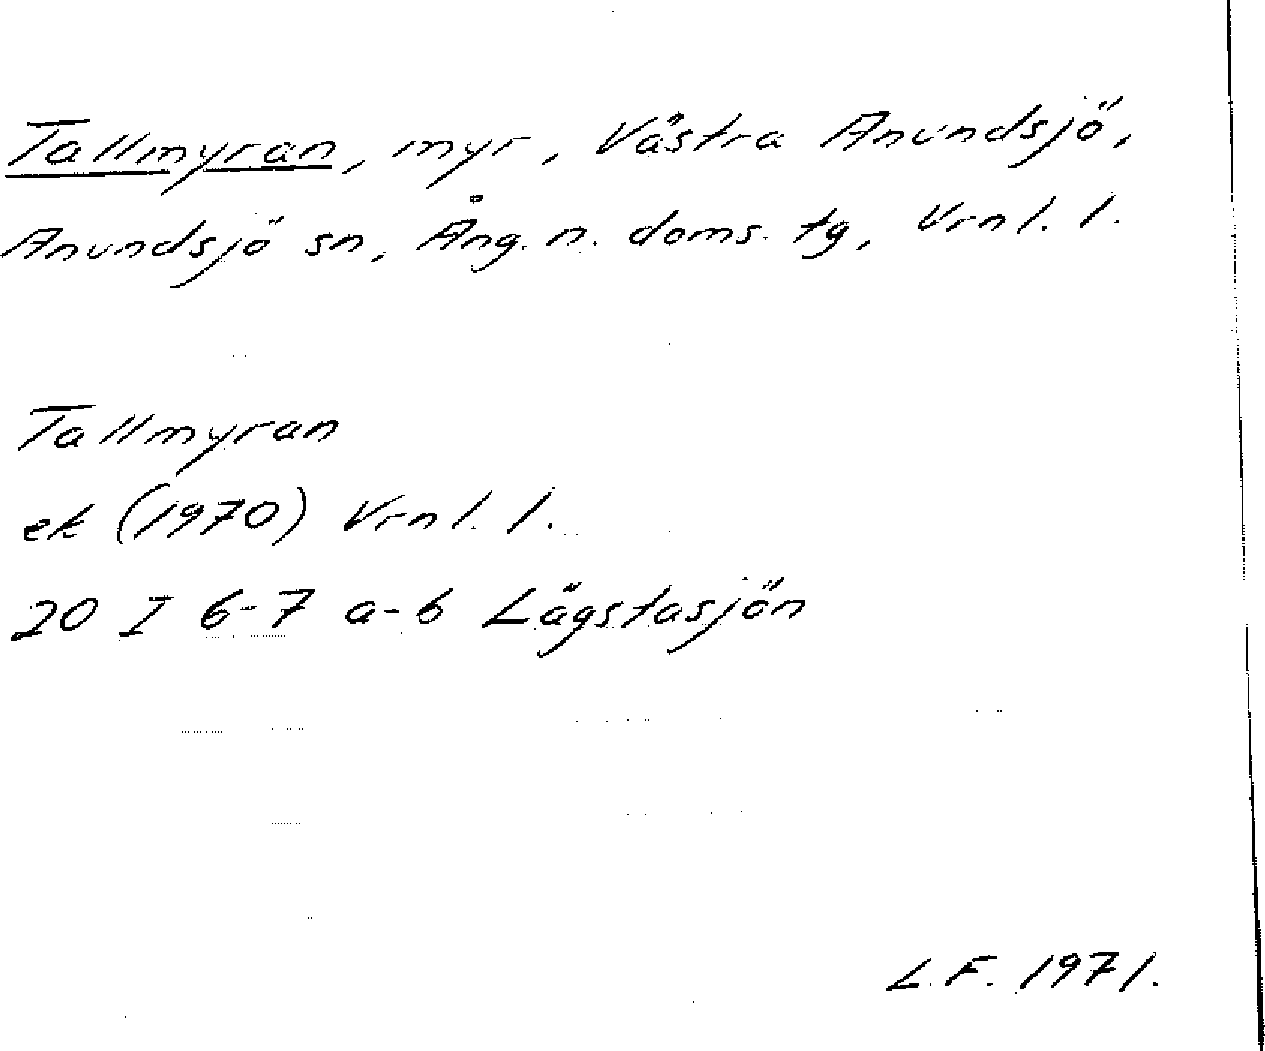 Tallmyran, myr, Västra Anundsjö,
Anundsjö sn, Ång. n. doms. tg, Vrnl. l.
Tallmyran
ek (1970) Vrnl. l.
20 I 6-7 a-b Lägstasjön
L.F. 1971.